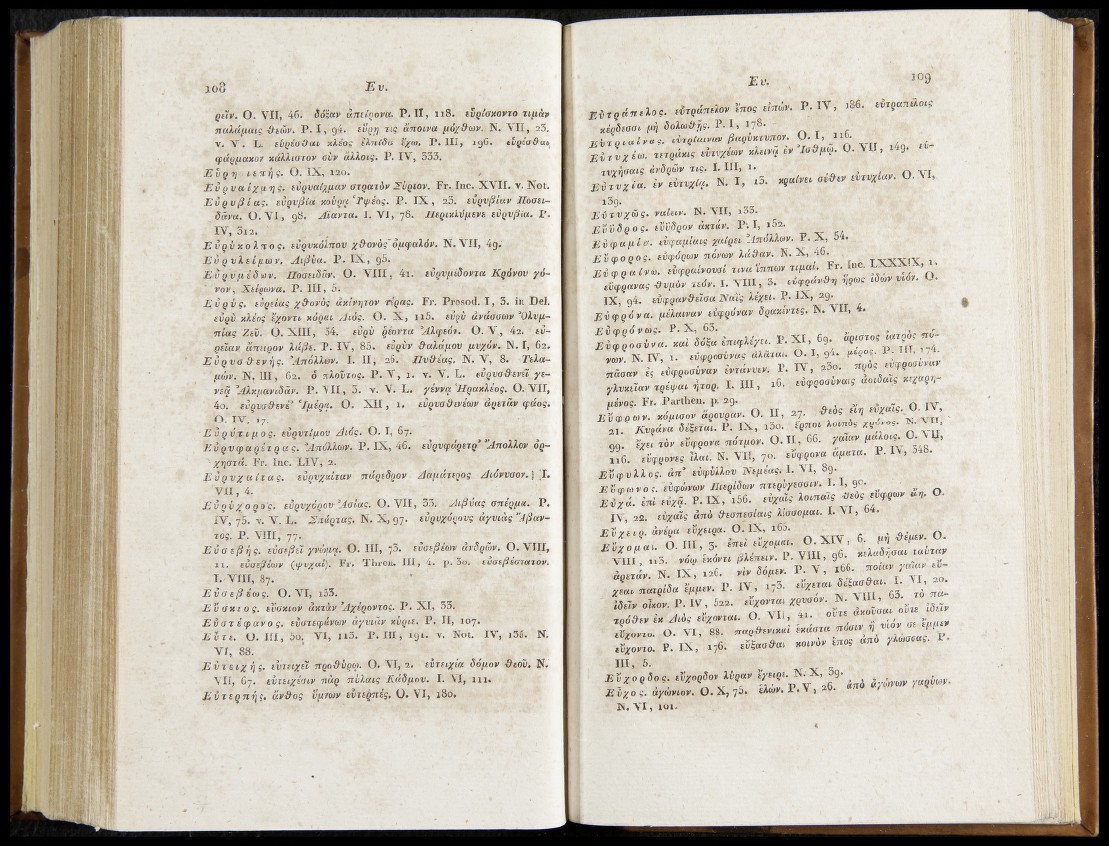 108
Ευ.
ρεῖν. O. VII, 46. δόξαν ἀπείρονα. P. II, 118. εὑρίσκοντο τιμὰν
παλάμαις θεῶν. P. I, 94. εὕρῃ τις ἄποινα μόχθων. N. VII, 23.
v. V. L. εὑρέσθαι κλέος ἐλπίδα ἔχω. P. III, 196. εὑρέσθαι
φάρμακον κάλλιστον οὐν ἄλλοις. P. IV, 333.
Εὑρησιεπής. O. IX, 120.
Εὐρυαίχμης. εὐρυαίχμαν στρατὸν Σύριον. Fr. Inc. XVII. v. Not.
Εὐρυβίας. εὐρυβία κούρᾳ Ῥψέος. P. IX, 23. εὐρυβίαν Ποσει-
δᾶνα. O. VI, 98. Αἴαντα. I. VI, 78. Περικλύμενε εὐρυβία. P.
IV, 312.
Εὐρύκολπος. εὐρυκόλπου χθονὸς ὀμφαλόν. N. VII, 49.
Εὐρυλείμων. Λιβύα. P. IX, 95.
Εὐρυμέδων. Ποσειδᾶν. O. VIII, 41. εὐρυμέδοντα Κρόνου γό-
νον, Χείρωνα. P. III, 5.
Εὐρύς. εὐρείας χθονὸς ἀκίνητον τέρας. Fr. Prosod. I, 3. in Del.
εὐρὺ κλέος ἔχοντι κόραι Διός. O. X, 115. εὐρὺ ἀνάσσων Ὀλυμ-
πίας Ζεῦ. O. XIII, 34. εὐρὺ ῥέοντα Ἀλφεόν. O. V, 42. εὐ-
ρεῖαν ἄπειρον λάβε. P. IV, 85. εὐρὺν θαλάμου μυχόν. N. I, 62.
Εὐρυσθενής. Ἀπόλλων. I. II, 26. Πυθέας. N. V, 8. Τελα-
μών. N. III, 62. ὁ πλοῦτος. P. V, 1. v. V. L. εὐρυσθενεῖ γε-
νεᾷ Ἀλκμανιδᾶν. P. VII, 3. v. V. L. γέννᾳ Ἡρακλέος. O. VII,
40. εὐρυσθενὲς Ἱμέρα. O. XII, 1. εὐρυσθενέων ἀρετᾶν φάος.
O. IV, 17.
Εὐρύτιμος. εὐρυτίμου Διός. O. I, 67.
Εὐρυφαρέτρας. Ἀπόλλων. P. IX, 46. εὐρυφάρετρ' Ἄπολλον ὀρ-
χηστά. Fr. Inc. LIV, 2.
Εὐρυχαίτας. εὐρυχαίταν πάρεδρον Δαμάτερος Διόνυσον. I.
VII, 4.
Εὐρύχορος. εὐρυχόρου Ἀσίας. O. VII, 33. Λιβύας σπέρμα. P.
IV, 75. v. V. L. Σπάρτας. N. X, 97. εὐρυχόρους ἀγυιὰς Ἄβαν-
τος. P. VIII, 77.
Εὐσεβής. εὐσεβεῖ γνώμᾳ. O. III, 73. εὐσεβέων ἀνδρῶν. O. VIII,
11. εὐσεβέων (ψυχαί). Fr. Thren. III, 4. p. 30. εὐσεβέστατον.
I. VIII, 87.
Εὐσεβέως. O. VI, 133.
Εὔσκιος. εὔσκιον ἀκτὰν Ἀχέροντος. P. XI, 33.
Εὐστέφανος. εὐστεφάνων ἀγυιᾶν κύριε. P. II, 107.
Εὖτε. O. III, 50. VI, 113. P. III, 191. v. Not. IV, 136. N.
VI, 88.
Εὐτειχής. εὐτειχεῖ προθύρῳ. O. VI, 2. εὐτειχέα δόμον θεοῦ. N.
VII, 67. εὐτειχέσιν πὰρ πύλαις Κάδμου. I. VI, 111.
Εὐτερπής. ἄνθος ὕμνων εὐτερπές. O. VI, 180.
Ευ.
109
Εὐτράπελος. εὐτράπελον ἔπος εἰπών. P. IV, 186. εὐτραπέλοις
κέρδεσσι μὴ δολωθῇς. P. I, 178.
Εὐτρίαινας. εὐτρίαιναν βαρύκτυπον. O. I, 116.
Εὐτυχέω. τετράκις εὐτυχέων κλεινᾷ ἐν Ἰσθμῷ. O. VII, 149. εὐ-
τυχήσαις ἀνδρῶν τις. I. III, 1.
Εὐτυχία. ἐν εὐτυχίᾳ. N. I, 15. κραίνει σέθεν εὐτυχίαν. O. VI,
139.
Εὐτυχῶς. ναίειν. N. VII, 133.
Εὔϋδρος. εὔυδρον ἀκτάν. P. I, 152.
Εὐφαμία. εὐφαμίαις χαίρει Ἀπόλλων. P. X, 54.
Εὔφορος. εὐφόρων πόνων λάθαν. N. X, 46.
Εὐφραίνω. εὐφραίνουσί τινα ἵππων τιμαί. Fr. Inc. LXXXIX, 1.
εὔφρανας θυμὸν τεόν. I. VIII, 3. εὐφράνθη ἥρως ἰδὼν υἱόν. O.
IX, 94. εὐφρανθεῖσα Ναῒς λέχει. P. IX, 29.
Εὐφρόνα. μέλαιναν εὐφρόναν δρακέντες. N. VII, 4.
Εὐφρόνως. P. X, 63.
Εὐφροσύνα. καὶ δόξα ἐπιφλέγει. P. XI, 69. ἄριστος ἰατρὸς πό-
νων. N. IV, 1. εὐφροσύνας ἀλᾶται. O. I, 94. μέρος. P. III, 174.
πᾶσαν ἐς εὐφροσύναν ἐντανύειν. P. IV, 230. πρὸς εὐφροσύναν
γλυκεῖαν τρέψαι ἦτορ. I. III, 16. εὐφροσύναις ἀοιδαῖς κεχαρη-
μένος. Fr. Parthen. p. 29.
Εὔφρων. κόμισον ἄρουραν. O. II, 27. θεὸς εἴη εὐχαῖς. O. IV,
21. Κυράνα δέξεται. P. IX, 130. ἕρποι λοιπὸς χρόνος. N. VII,
99. ἔχει τὸν εὔφρονα πότμον. O. II, 66. γαῖαν μάλοις. O. VII,
116. εὔφρονες ἵλαι. N. VII, 70. εὔφρονα ἄματα. P. IV, 348.
Εὔφυλλος. ἀπ' εὐφύλλου Νεμέας. I. VI, 89.
Εὔφωνος. εὐφώνων Πιερίδων πτερύγεσσιν. I. I, 90.
Εὐχά. ἐπὶ εὐχᾷ. P. IX, 156. εὐχαῖς λοιπαῖς θεὸς εὔφρων ἄη. O.
IV, 22. εὐχαῖς ἀπὸ θεσπεσίαις λίσσομαι. I. VI, 64.
Εὔχειρ. ἀνέρα εὔχειρα. O. IX, 165.
Εὔχομαι. O. III, 3. ἐπεὶ εὔχομαι. O. XIV, 6. μὴ θέμεν. O.
VIII, 113. νόῳ ἑκόντι βλέπειν. P. VIII, 96. κελαδῆσαι ταύταν
ἀρετάν. N. IX, 126. νὶν δόμεν. P. V, 166. ποίαν γαῖαν εὔ-
χεαι πατρίδα ἔμμεν. P. IV, 173. εὔχεται δέξασθαι. I. VI, 20.
ἰδεῖν οἶκον. P. IV, 522. εὔχονται χρυσόν. N. VIII, 63. τὸ πα-
τρόθεν ἐκ Διὸς εὔχονται. O. VII, 41. οὔτε ἀκοῦσαι οὔτε ἰδεῖν
εὔχοντο. O. VI, 88. παρθενικαὶ ἑκάστα πόσιν ἢ υἱόν σε ἔμμεν
εὔχοντο. P. IX, 176. εὔξασθαι κοινὸν ἔπος ἀπὸ γλώσσας. P.
III, 5.
Εὔχορδος. εὔχορδον λύραν ἔγειρε. N. X, 39.
Εὖχος. ἀγώνιον. O. X, 75. ἑλών. P. V, 26. ἀπὸ ἀγώνων γαρύων.
N. VI, 101.